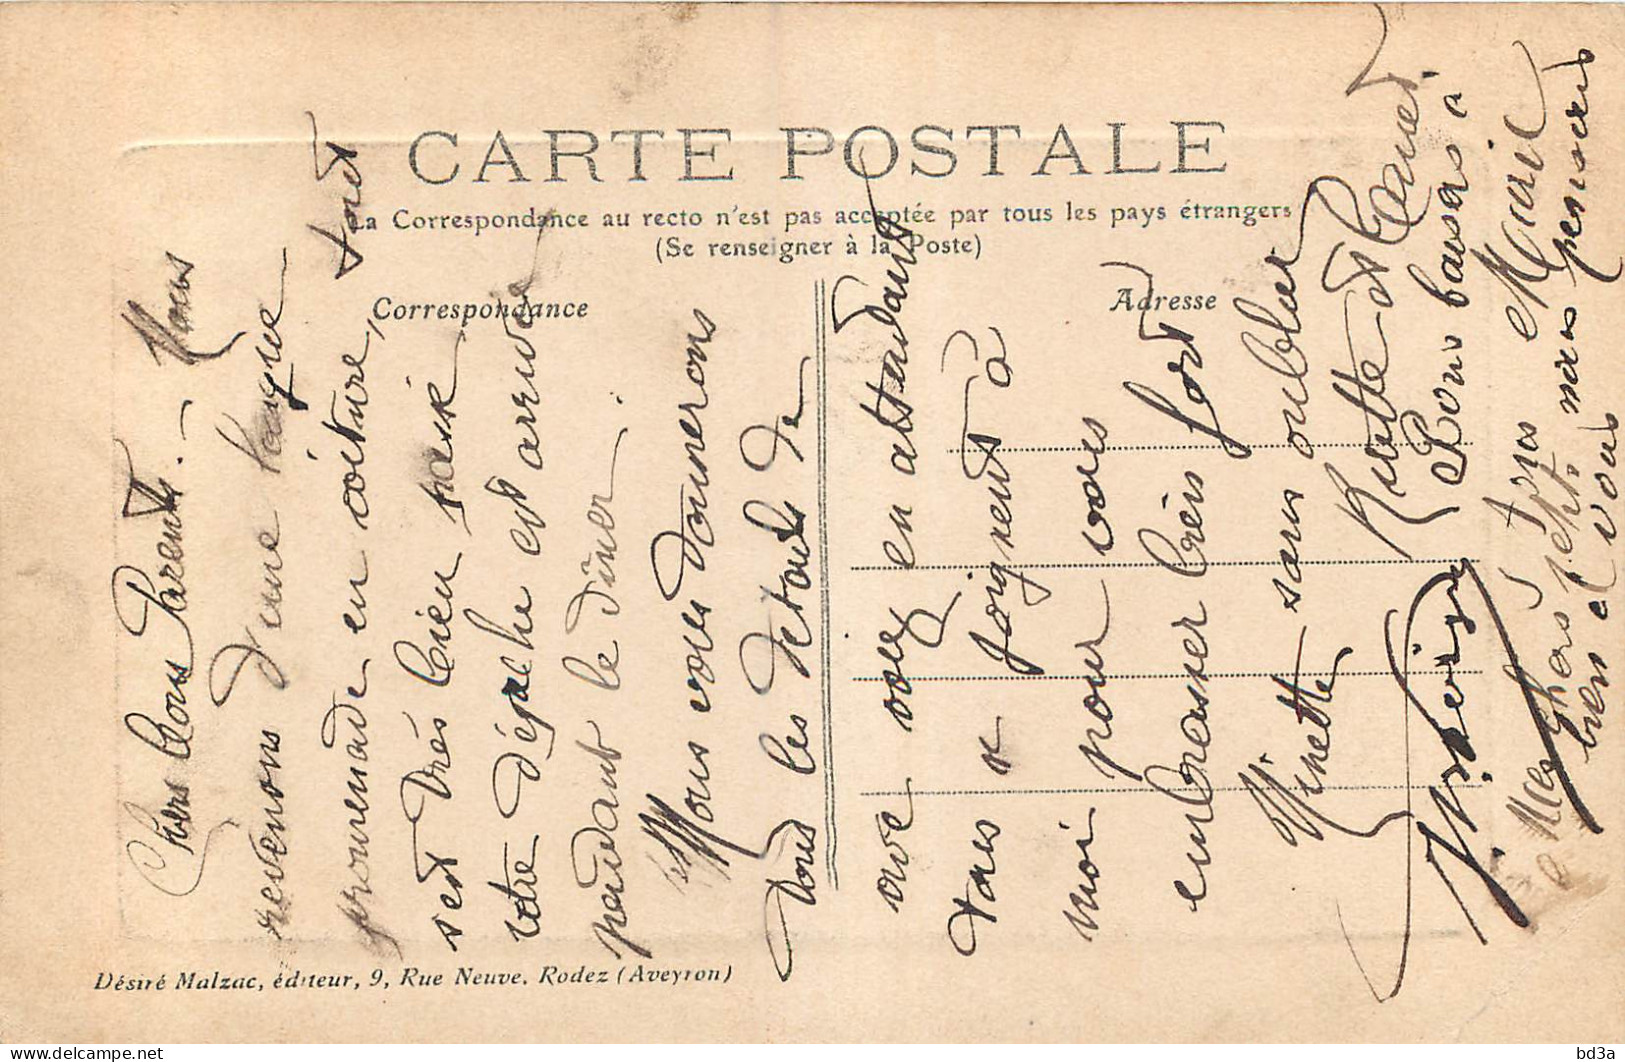 CARTE POSTALE
La Correspondance au recto n'est pas acceptée par tous les pays étrangers
(Se renseigner à la Poste)
Correspondance
Adresse
Chers bons Parents. — Nous
revenons d'une longue
promenade en voiture, tout
s'est très bien passé
votre dépêche est arrivée
pendant le dîner.
Nous vous donnerons
tous les détails de
vive voix en attendant
Tous se joignent à
moi pour vous
embrasser bien fort
sans oublier
Ninette
Louis baisers à
tous Marie
Mes chers
bien à vous
Désiré Malzac, éditeur, 9, Rue Neuve. Rodez (Aveyron)
bd3a